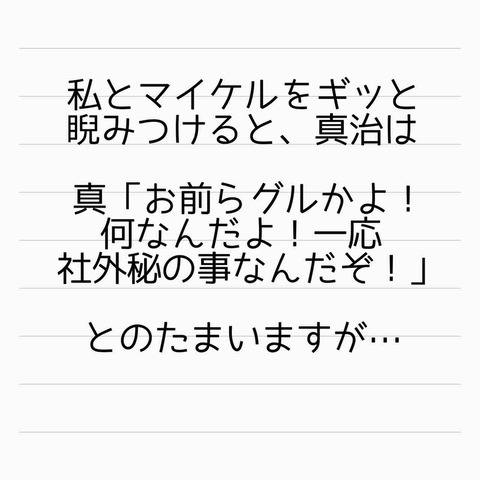 私とマイケルをギッと
睨みつけると、真治は
真「お前らグルかよ！
何なんだよ！一応
社外秘の事なんだぞ！」
とのたまいますが…